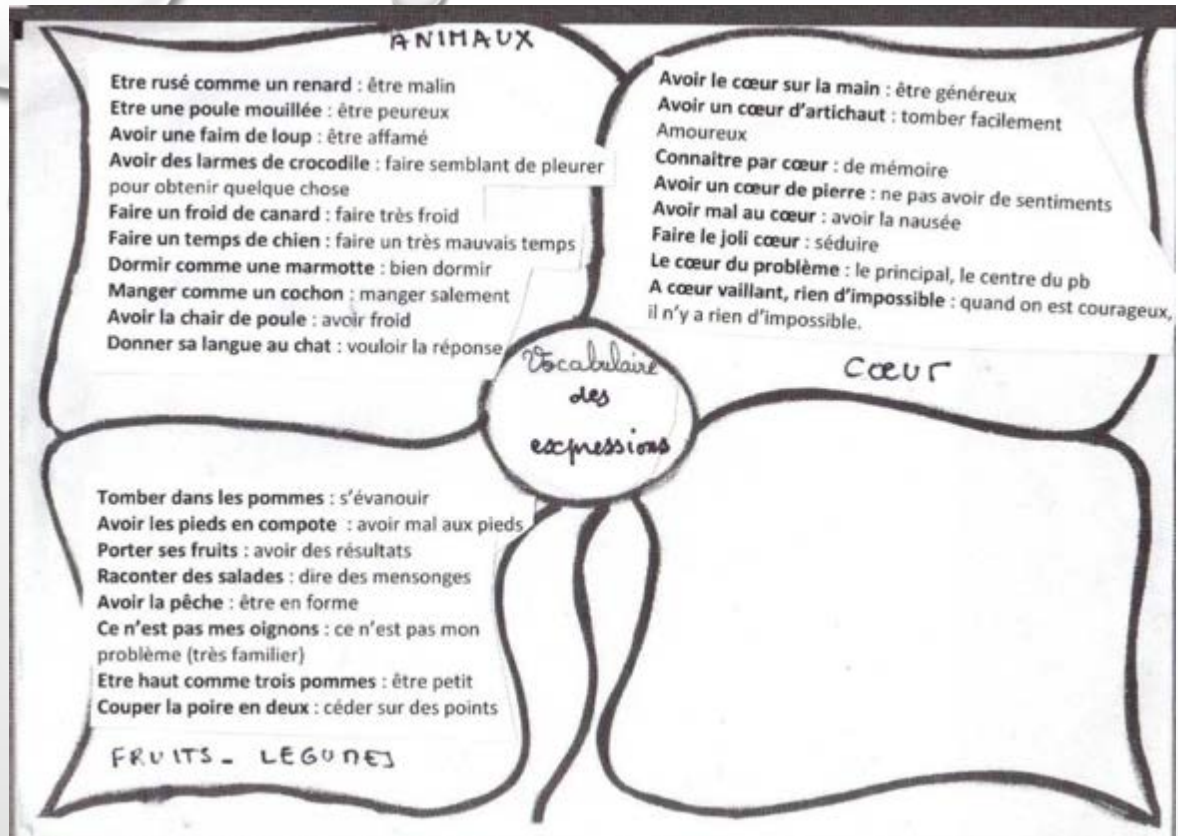 ANIMAUX
Etre rusé comme un renard : être malin
Etre une poule mouillée : être peureux
Avoir une faim de loup : être affamé
Avoir des larmes de crocodile : faire semblant de pleurer
pour obtenir quelque chose
Faire un froid de canard : faire très froid
Faire un temps de chien : faire un très mauvais temps
Dormir comme une marmotte : bien dormir
Manger comme un cochon : manger salement
Avoir la chair de poule : avoir froid
Donner sa langue au chat : vouloir la réponse
Avoir le cœur sur la main : être généreux
Avoir un cœur d'artichaut : tomber facilement
Amoureux
Connaitre par cœur : de mémoire
Avoir un cœur de pierre : ne pas avoir de sentiments
Avoir mal au cœur : avoir la nausée
Faire le joli cœur : séduire
Le cœur du problème : le principal, le centre du pb
A cœur vaillant, rien d'impossible : quand on est courageux,
il n'y a rien d'impossible.
Cœur
Vocabulaire
des
expressions
Tomber dans les pommes : s'évanouir
Avoir les pieds en compote : avoir mal aux pieds
Porter ses fruits : avoir des résultats
Raconter des salades : dire des mensonges
Avoir la pêche : être en forme
Ce n'est pas mes oignons : ce n'est pas mon
problème (très familier)
Etre haut comme trois pommes : être petit
Couper la poire en deux : céder sur des points
FRUITS - LEGUMES